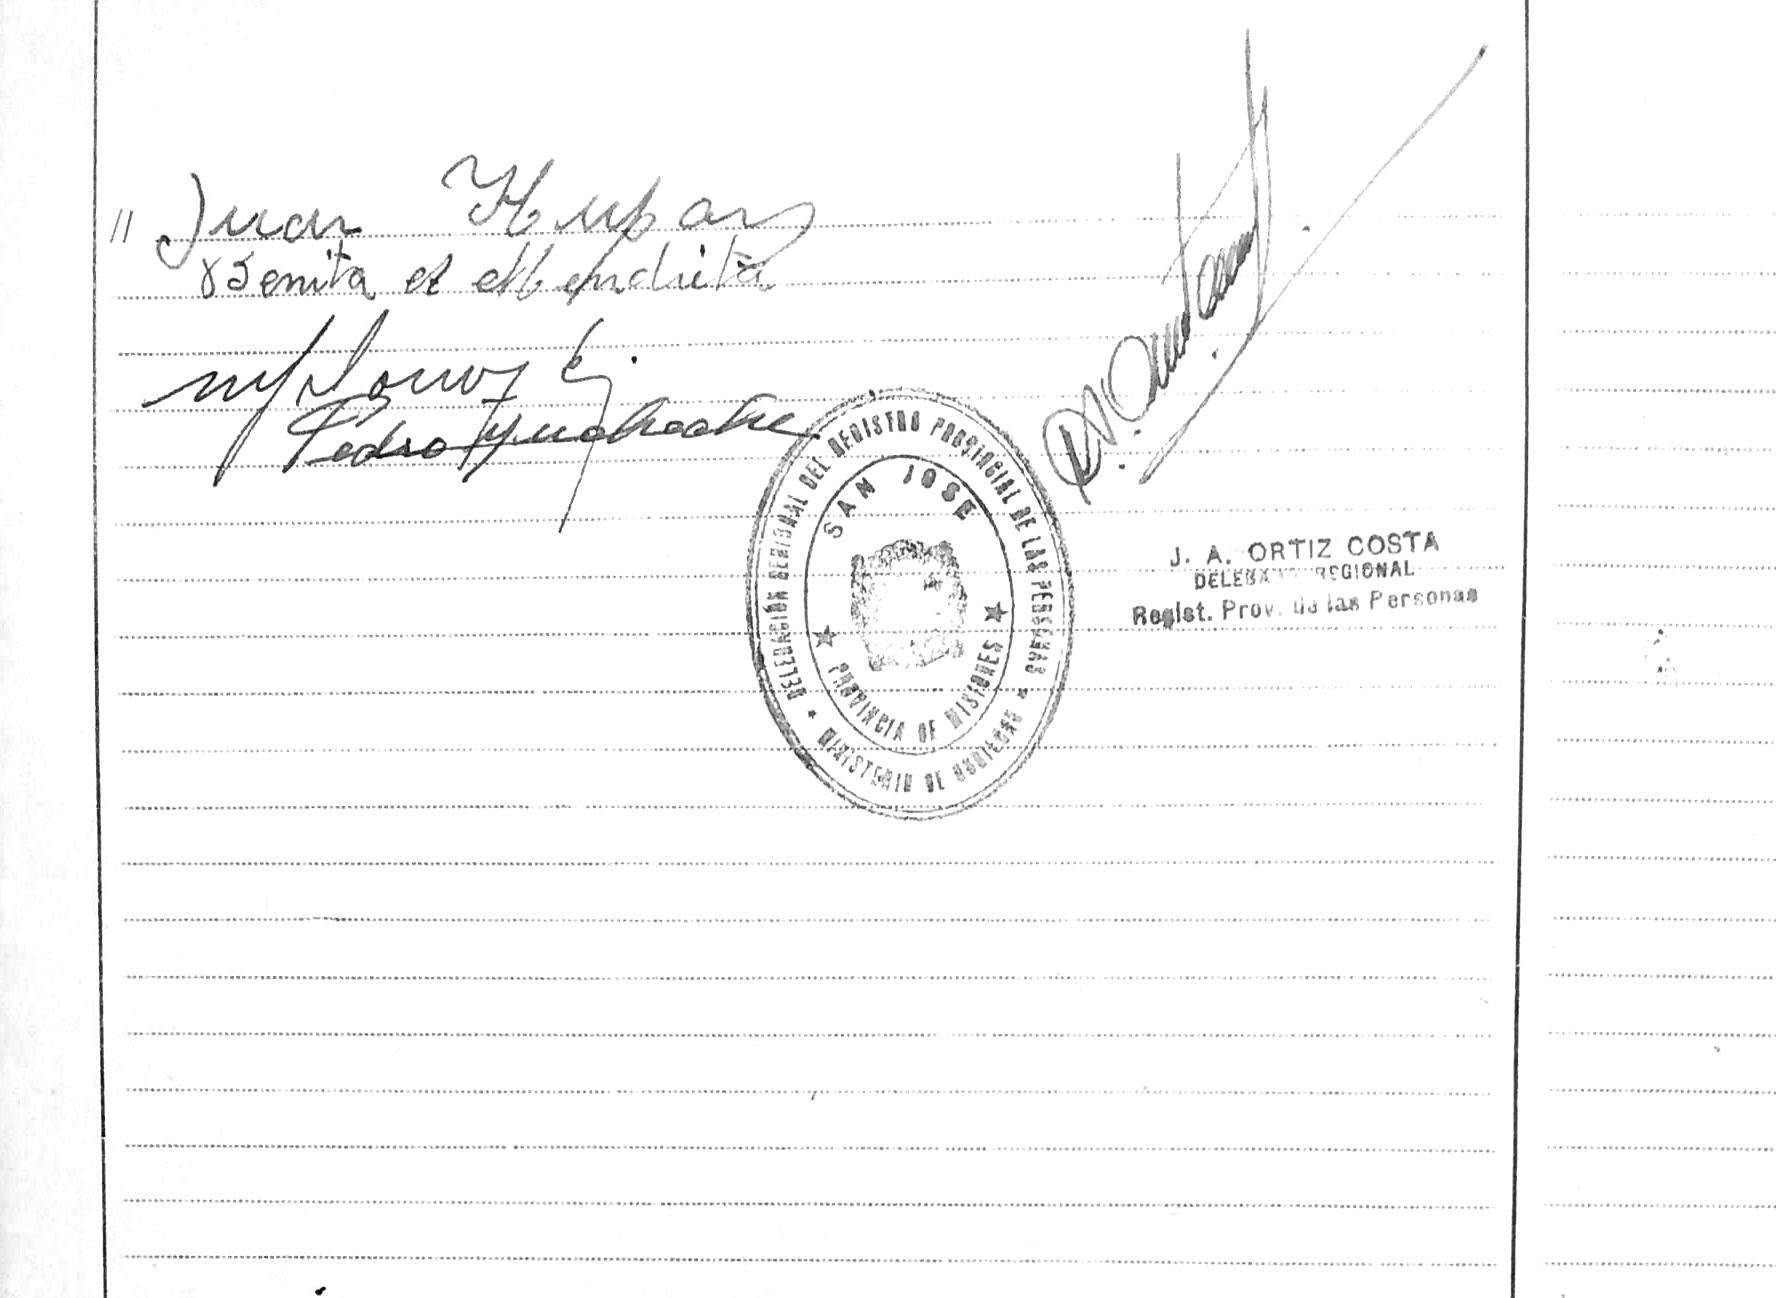 // Juan Hupan
Benita A Mendieta
Pedro
DELEGACIÓN REGIONAL DEL REGISTRO PROVINCIAL DE LAS PERSONAS
SAN JOSE
PROVINCIA DE MISIONES
MINISTERIO DE GOBIERNO
J. A. ORTIZ COSTA
DELEGADO REGIONAL
Regist. Prov. de las Personas